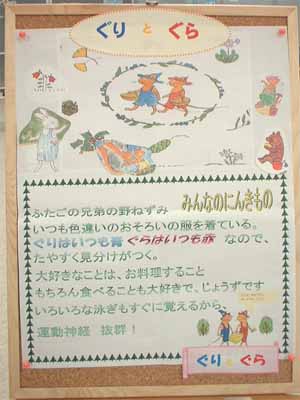 ぐりとぐら
みんなのにんきもの
ふたごの兄弟の野ねずみ
いつも色違いのおそろいの服を着ている。
ぐりはいつも青 ぐらはいつも赤 なので、
たやすく見分けがつく。
大好きなことは、お料理すること
もちろん食べることも大好きで、じょうずです
いろいろな泳ぎもすぐに覚えるから、
運動神経 抜群！
ぐりとぐら